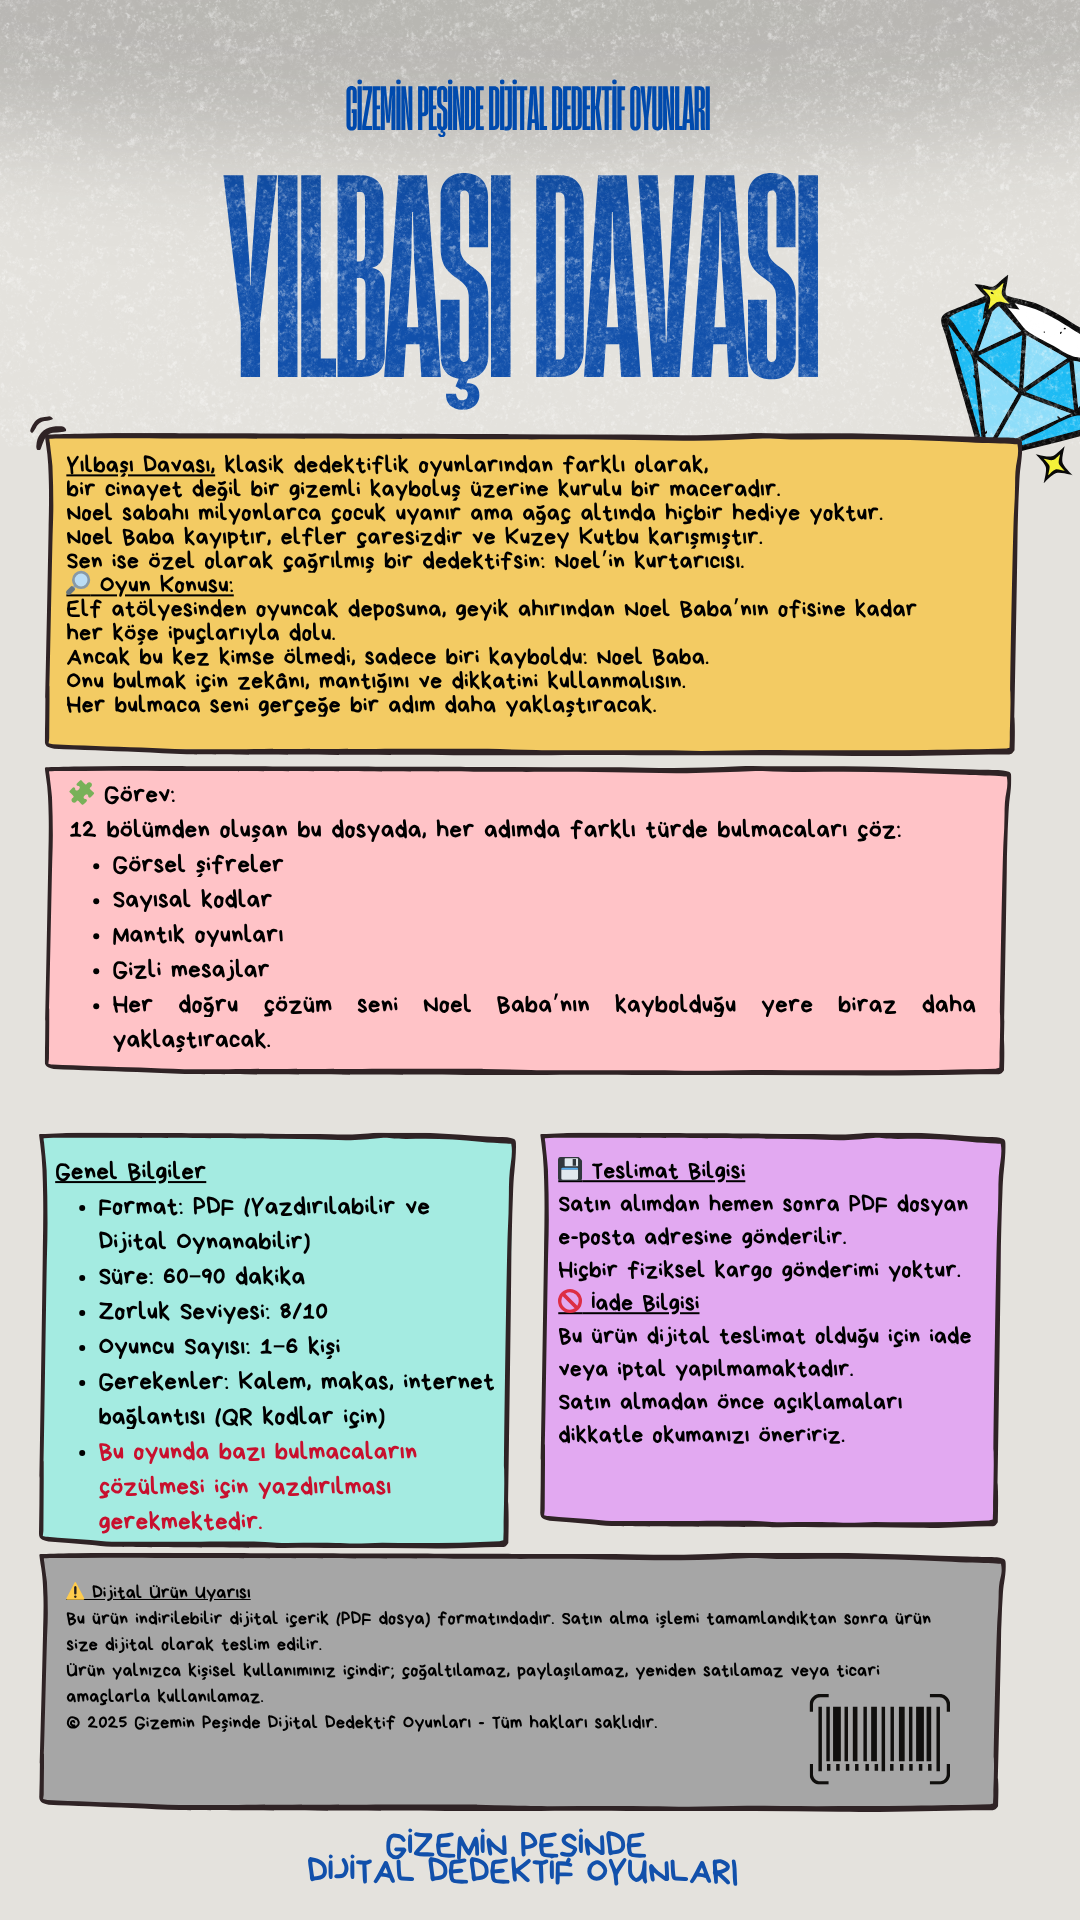 GİZEMİN PEŞİNDE DİJİTAL DEDEKTİF OYUNLARI
YILBAŞI DAVASI
Yılbaşı Davası, klasik dedektiflik oyunlarından farklı olarak,
bir cinayet değil bir gizemli kayboluş üzerine kurulu bir maceradır.
Noel sabahı milyonlarca çocuk uyanır ama ağaç altında hiçbir hediye yoktur.
Noel Baba kayıptır, elfler çaresizdir ve Kuzey Kutbu karışmıştır.
Sen ise özel olarak çağrılmış bir dedektifsin: Noel’in kurtarıcısı.
🔎 Oyun Konusu:
Elf atölyesinden oyuncak deposuna, geyik ahırından Noel Baba’nın ofisine kadar
her köşe ipuçlarıyla dolu.
Ancak bu kez kimse ölmedi, sadece biri kayboldu: Noel Baba.
Onu bulmak için zekânı, mantığını ve dikkatini kullanmalısın.
Her bulmaca seni gerçeğe bir adım daha yaklaştıracak.
🧩 Görev:
12 bölümden oluşan bu dosyada, her adımda farklı türde bulmacaları çöz:
• Görsel şifreler
• Sayısal kodlar
• Mantık oyunları
• Gizli mesajlar
• Her doğru çözüm seni Noel Baba’nın kaybolduğu yere biraz daha
yaklaştıracak.
Genel Bilgiler
• Format: PDF (Yazdırılabilir ve
Dijital Oynanabilir)
• Süre: 60–90 dakika
• Zorluk Seviyesi: 8/10
• Oyuncu Sayısı: 1–6 kişi
• Gerekenler: Kalem, makas, internet
bağlantısı (QR kodlar için)
• Bu oyunda bazı bulmacaların
çözülmesi için yazdırılması
gerekmektedir.
💾 Teslimat Bilgisi
Satın alımdan hemen sonra PDF dosyan
e-posta adresine gönderilir.
Hiçbir fiziksel kargo gönderimi yoktur.
🚫 İade Bilgisi
Bu ürün dijital teslimat olduğu için iade
veya iptal yapılmamaktadır.
Satın almadan önce açıklamaları
dikkatle okumanızı öneririz.
⚠️ Dijital Ürün Uyarısı
Bu ürün indirilebilir dijital içerik (PDF dosya) formatındadır. Satın alma işlemi tamamlandıktan sonra ürün
size dijital olarak teslim edilir.
Ürün yalnızca kişisel kullanımınız içindir; çoğaltılamaz, paylaşılamaz, yeniden satılamaz veya ticari
amaçlarla kullanılamaz.
© 2025 Gizemin Peşinde Dijital Dedektif Oyunları - Tüm hakları saklıdır.
GİZEMİN PEŞİNDE
DİJİTAL DEDEKTİF OYUNLARI